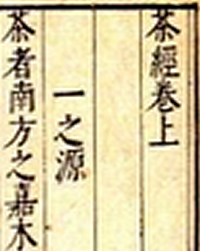 茶經卷上
一之源
茶者南方之嘉木